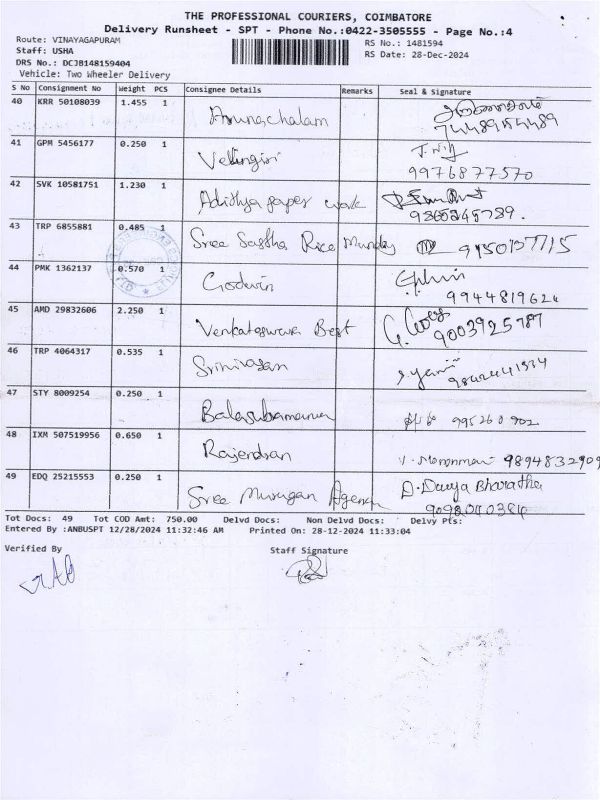 THE PROFESSIONAL COURIERS, COIMBATORE
Delivery Runsheet - SPT - Phone No.:0422-3505555 - Page No.:4
Route: VINAYAGAPURAM
Staff: USHA
DRS No.: DCJB148159404
Vehicle: Two Wheeler Delivery
RS No.: 1481594
RS Date: 28-Dec-2024
S No Consignment No Weight PCS Consignee Details Remarks Seal & Signature
40 KRR 50108039 1.455 1 Arunachalam
41 GPM 5456177 0.250 1 Vellingiri 9976877570
42 SVK 10581751 1.230 1 Adithya paper work
43 TRP 6855881 0.485 1 Sree Sastha Rice Munday 9150137715
44 PMK 1362137 0.570 1 Godwin 9944819624
45 AMD 29832606 2.250 1 Venkateswara Best 9003925787
46 TRP 4064317 0.535 1 Srinivasan
47 STY 8009254 0.250 1 Balasubramanian
48 IXM 507519956 0.650 1 Rajendran 9894832909
49 EDQ 25215553 0.250 1 Sree Murugan Agency D. Divya Bharathi
Tot Docs: 49 Tot COD Amt: 750.00 Delvd Docs: Non Delvd Docs: Delvy Pts:
Entered By :ANBUSPT 12/28/2024 11:32:46 AM Printed On: 28-12-2024 11:33:04
Verified By Staff Signature